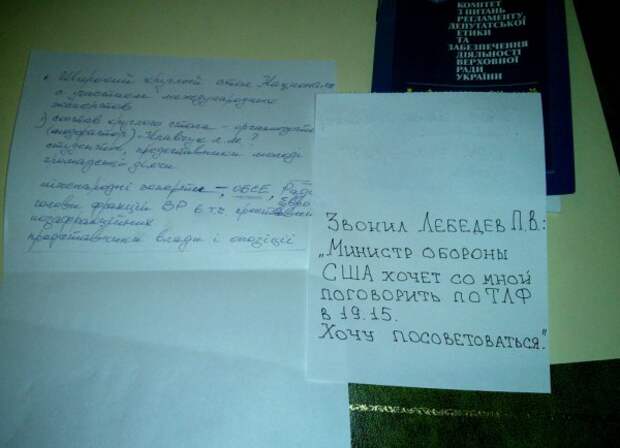 КОМІТЕТ
З ПИТАНЬ
РЕГЛАМЕНТУ,
ДЕПУТАТСЬКОЇ
ЕТИКИ
ТА
ЗАБЕЗПЕЧЕННЯ
ДІЯЛЬНОСТІ
ВЕРХОВНОЇ
РАДИ
УКРАЇНИ
Широкий круглый стол
с участием международных
экспертов
состав круглого стола -
(модератор) - Кравчук Л.М.?
студенты, представники молоді
громадські діячи
міжнародні експерти -, ОБСЕ, Рада
голови фракцій ВР
позафракційних
представники влади і опозіції
Звонил Лебедев П.В:
„Министр обороны
США хочет со мной
поговорить по ТЛФ
в 19.15.
Хочу посоветоваться."